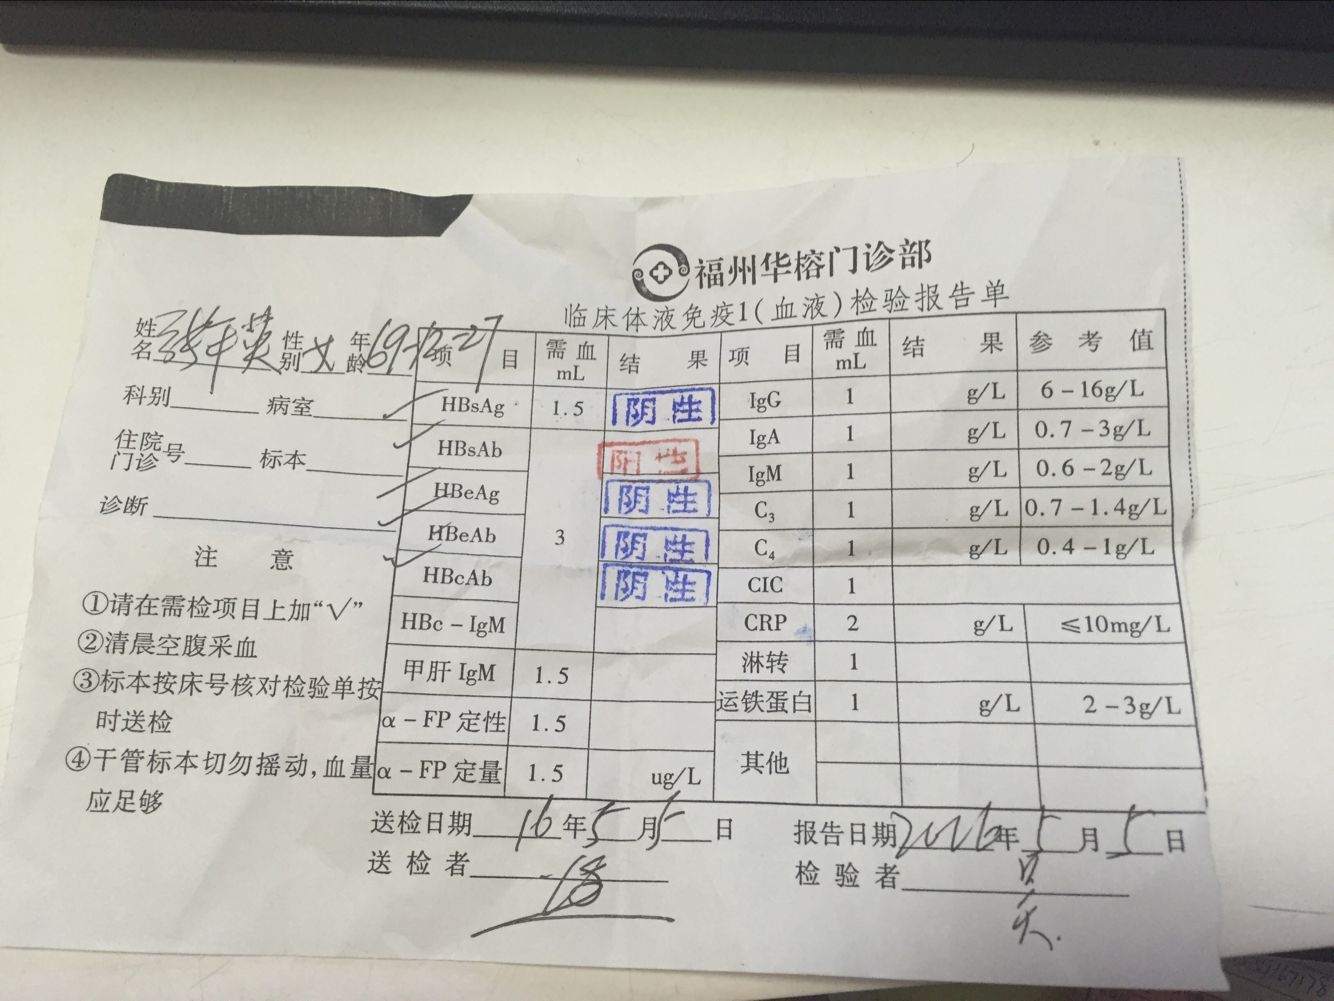 福州华榕门诊部
临床体液免疫1(血液)检验报告单
姓名 性别 女 年龄 69-12-27
科别 病室
住院门诊号 标本
诊断
注 意
①请在需检项目上加“√”
②清晨空腹采血
③标本按床号核对检验单按
时送检
④干管标本切勿摇动,血量
应足够
项 目 需血mL 结 果 项 目 需血mL 结 果 参 考 值
HBsAg 1.5 阴性 IgG 1 g/L 6-16g/L
HBsAb 阳性 IgA 1 g/L 0.7-3g/L
HBeAg 3 阴性 IgM 1 g/L 0.6-2g/L
HBeAb 阴性 C₃ 1 g/L 0.7-1.4g/L
HBcAb 阴性 C₄ 1 g/L 0.4-1g/L
HBc-IgM CIC 1
甲肝 IgM 1.5 CRP 2 g/L ≤10mg/L
α-FP 定性 1.5 淋转 1
α-FP 定量 1.5 ug/L 运铁蛋白 1 g/L 2-3g/L
其他
送检日期 16 年 5 月 5 日 报告日期 2016 年 5 月 5 日
送 检 者 检 验 者